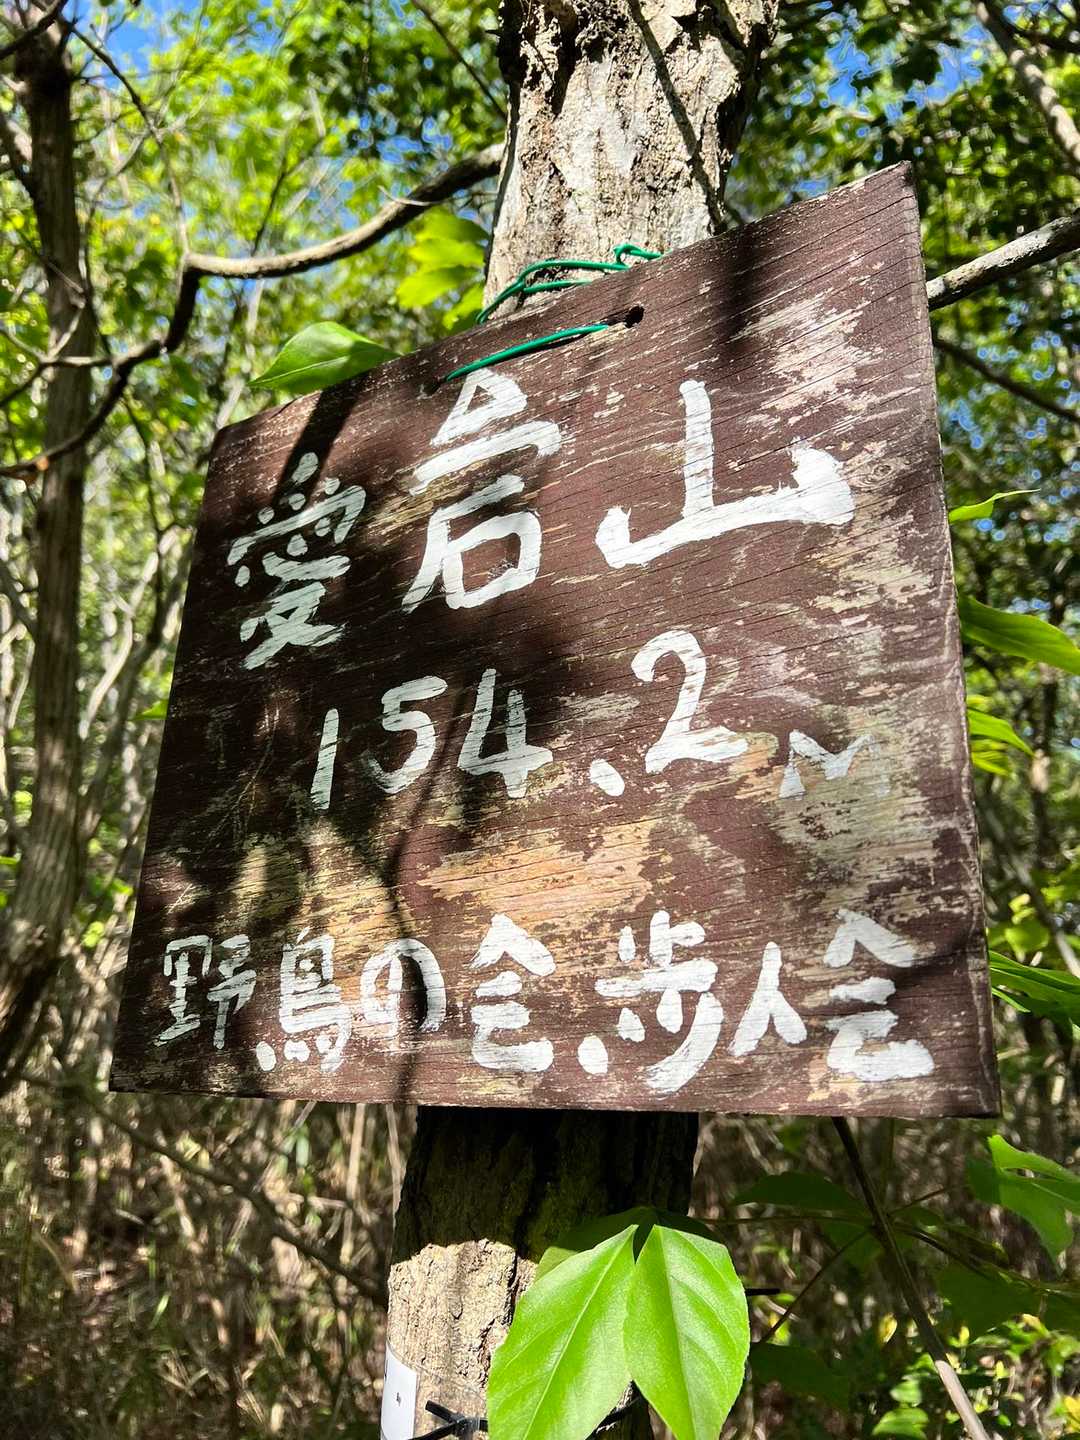 愛宕山
154.2M
野鳥の会.歩人会